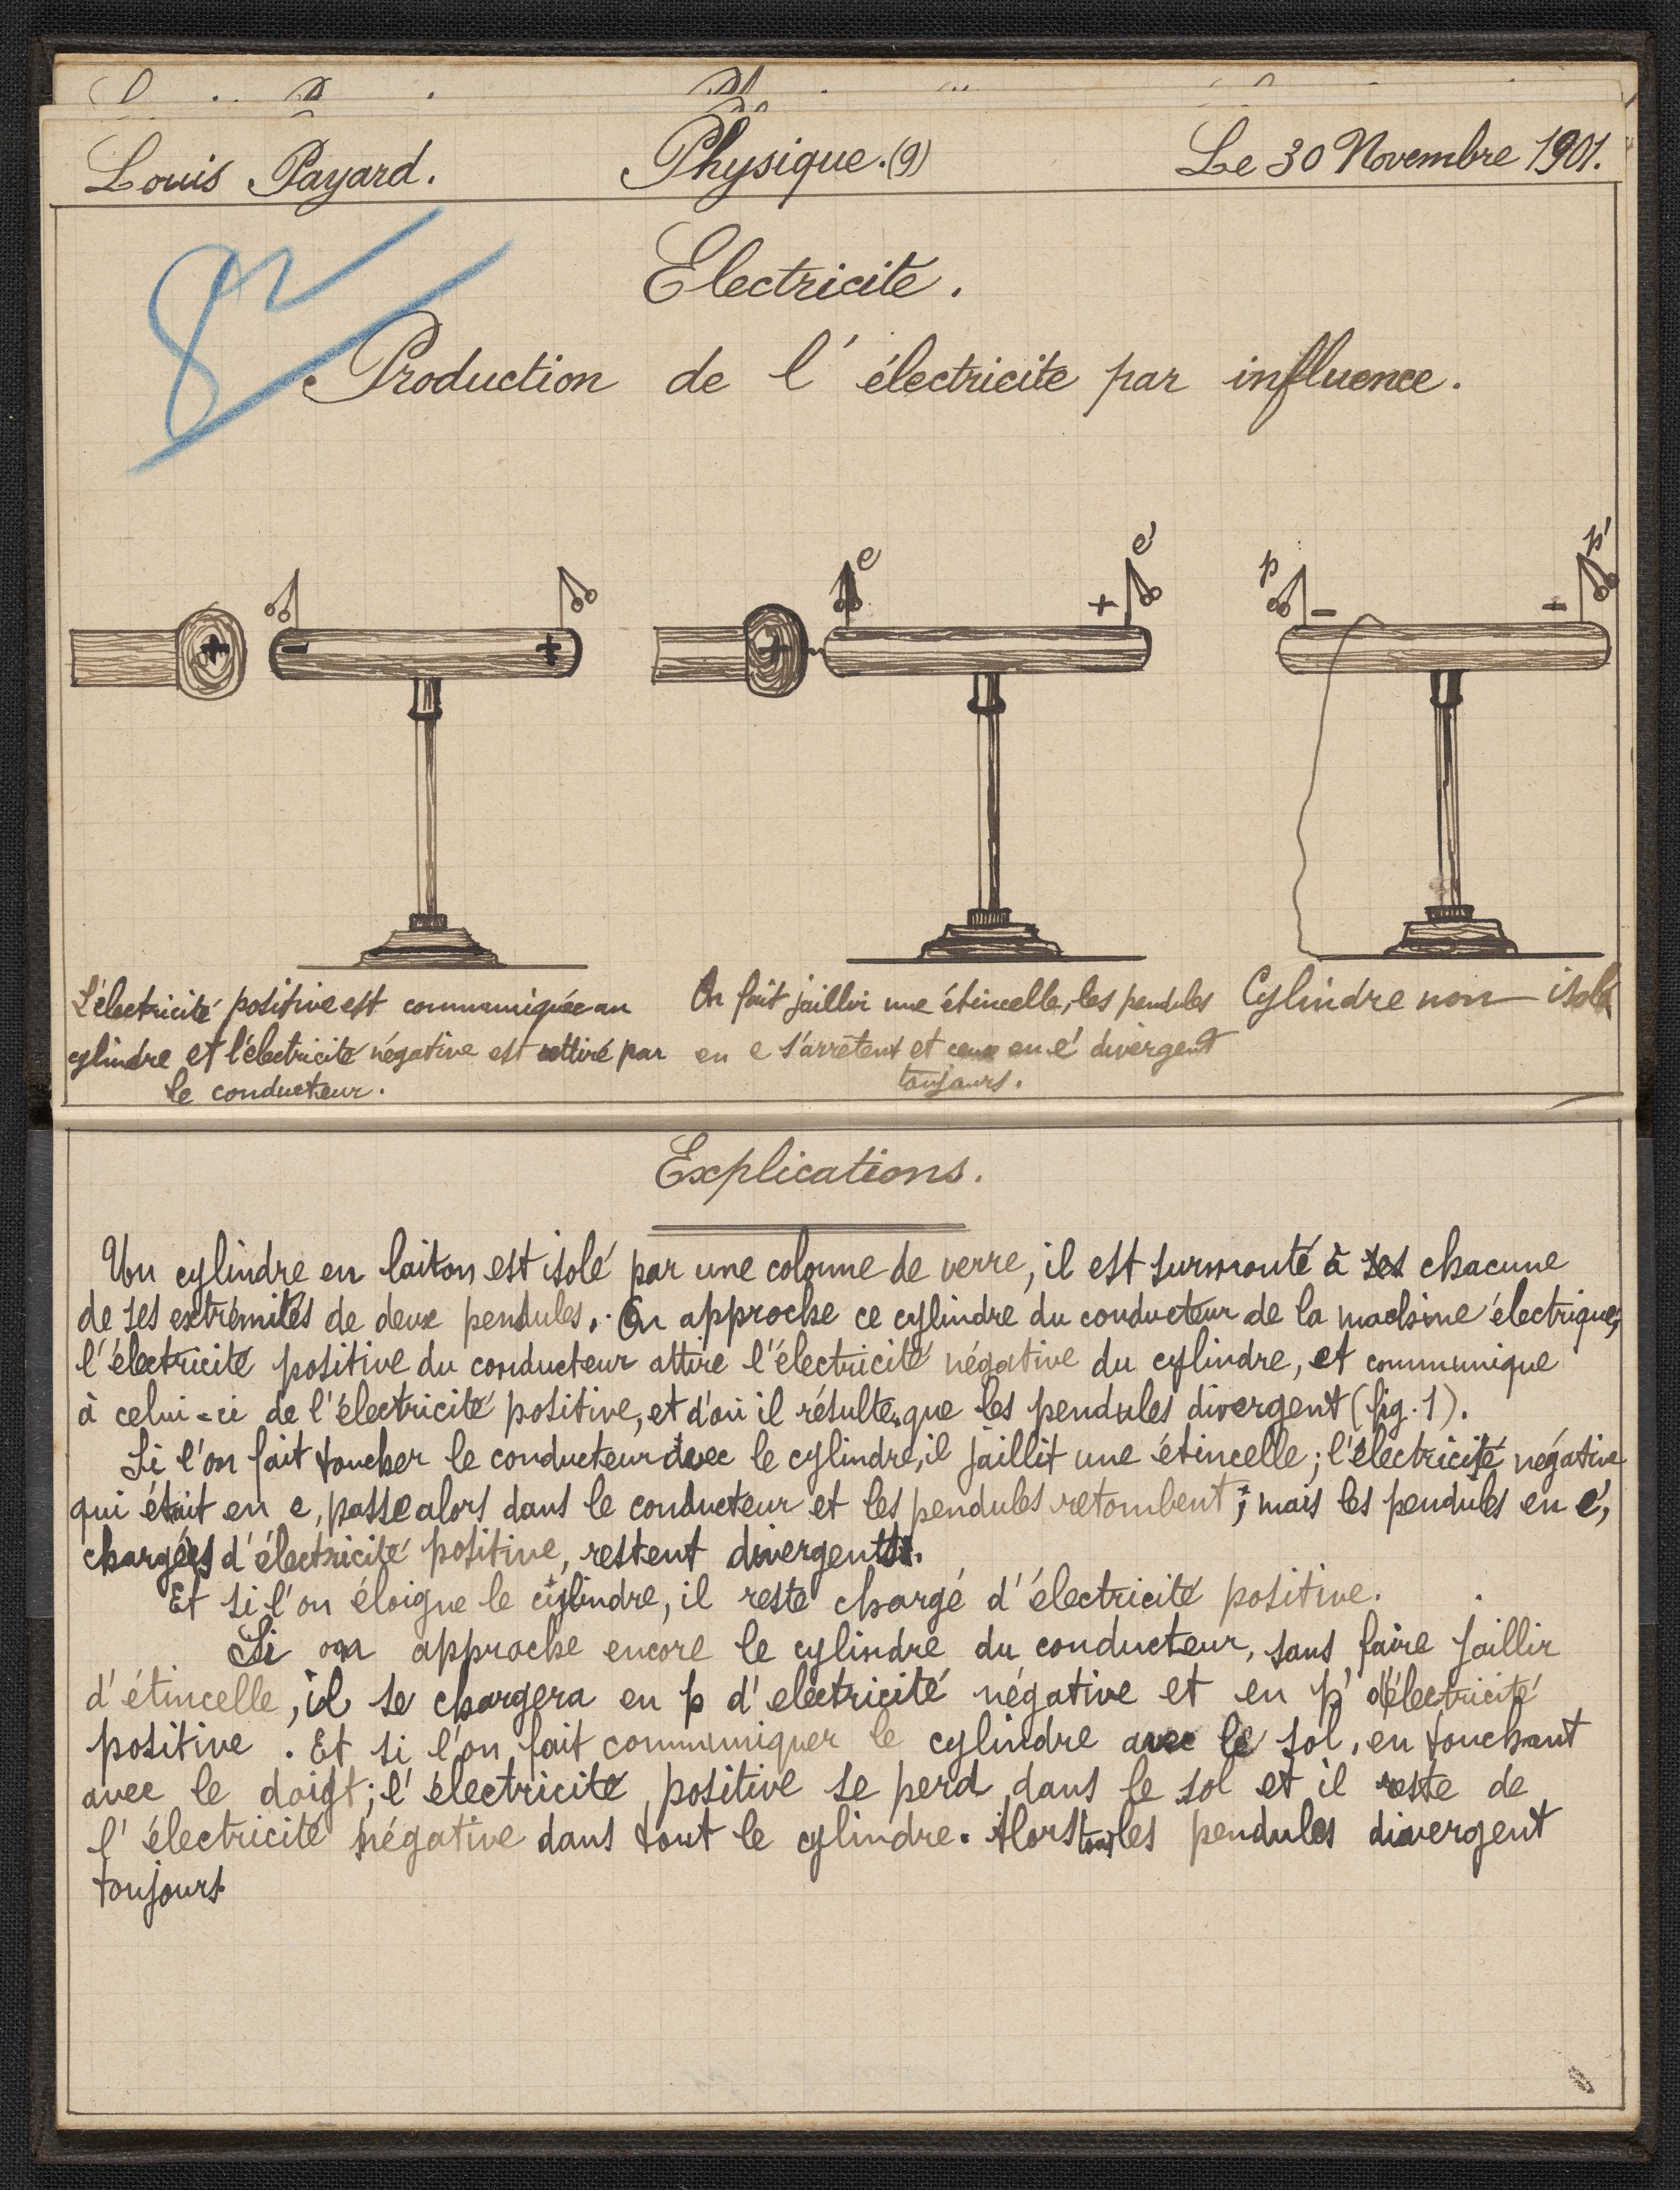 Louis Payard. Physique.(9) Le 30 Novembre 1901.
8
Electricite.
Production de l'électricite par influence.
e e' p p'
+ - + + + - -
L'électricité positive est communiquée au
cylindre et l'électricité négative est attiré par
le conducteur.
On fait jaillir une étincelle, les pendules
en e s'arrêtent et ceux en e' divergent
toujours.
Cylindre non isolé
Explications.
Un cylindre en laiton est isolé par une colonne de verre, il est surmonté à ses chacune
de ses extrémités de deux pendules. On approche ce cylindre du conducteur de la machine électrique,
l'électricité positive du conducteur attire l'électricité négative du cylindre, et communique
à celui-ci de l'électricité positive, et d'où il résulte que les pendules divergent (fig. 1).
Si l'on fait toucher le conducteur avec le cylindre, il jaillit une étincelle; l'électricité négative
qui était en e, passe alors dans le conducteur et les pendules retombent; mais les pendules en e',
chargées d'électricité positive, restent divergents.
Et si l'on éloigne le cylindre, il reste chargé d'électricité positive.
Si on approche encore le cylindre du conducteur, sans faire jaillir
d'étincelle, il se chargera en p d'electricité négative et en p' d'électricité
positive. Et si l'on fait communiquer le cylindre avec le sol, en touchant
avec le doigt; l'électricité positive se perd dans le sol et il reste de
l'électricité négative dans tout le cylindre. Alors tous les pendules divergent
toujours.